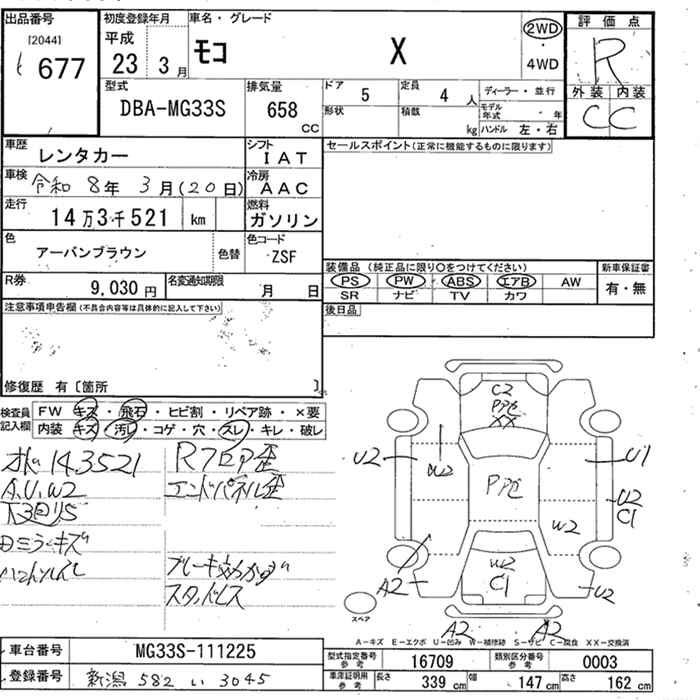 出品番号 初度登録年月 車名・グレード 評価点
[2044] 平成 2WD
677 23 3月 モコ X ・ R
4WD
型式 排気量 ドア 5 定員 4人 ディーラー・並行 外装 内装
DBA-MG33S 658 形状 積数 モデル年式 ・ 年 C C
CC kg ハンドル 左・右
車歴 シフト セールスポイント(正常に機能するものに限ります)
レンタカー IAT
車検 冷房
令和 8年 3月(20日) AAC
走行 燃料
14万3千521 km ガソリン
色 色替 色コード
アーバンブラウン ZSF
装備品 (純正品に限り○をつけてください) 新車保証書
R券 名変通知期限 PS PW ABS エアB AW 有・無
9,030円 月 日 SR ナビ TV カワ
注意事項申告欄(不具合内容等は具体的に記入して下さい) 後日品
修復歴 有〔箇所 〕
検査員記入欄 FW キズ・飛石・ヒビ割・リペア跡・×要
内装 キズ・汚レ・コゲ・穴・スレ・キレ・破レ
143521 Rフロア歪
A.U.W2 エンドパネル歪
下回りS
ミラーキズ
ハンドルスレ
スタッドレス
C2
XX
U2 U1
W2
U2
C1
W2
A2 C1 U2
スペア
A2 A2
A−キズ E−エクボ U−凹み W−補修跡 S−サビ C−腐食 XX−交換済
車台番号 MG33S-111225 型式指定番号 参考 16709 類別区分番号 参考 0003
登録番号 新潟 582 い 3045 車庫証明用 参考 長さ 339 cm 幅 147 cm 高さ 162 cm